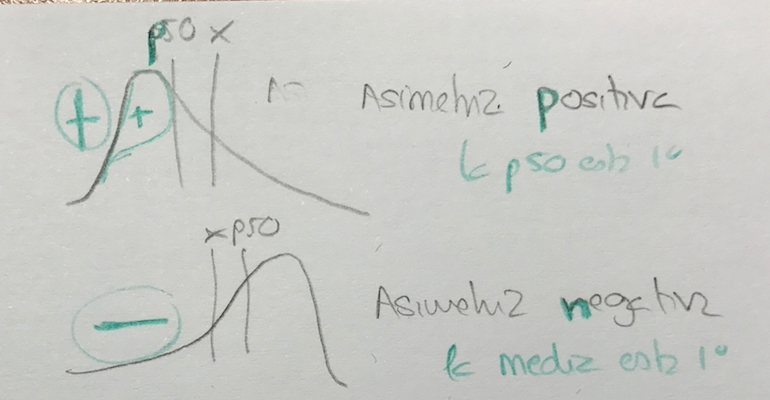 p50 x
+ +
Asimetria positiva
la p50 está 1º
x p50
−
Asimetria negativa
la media está 1º